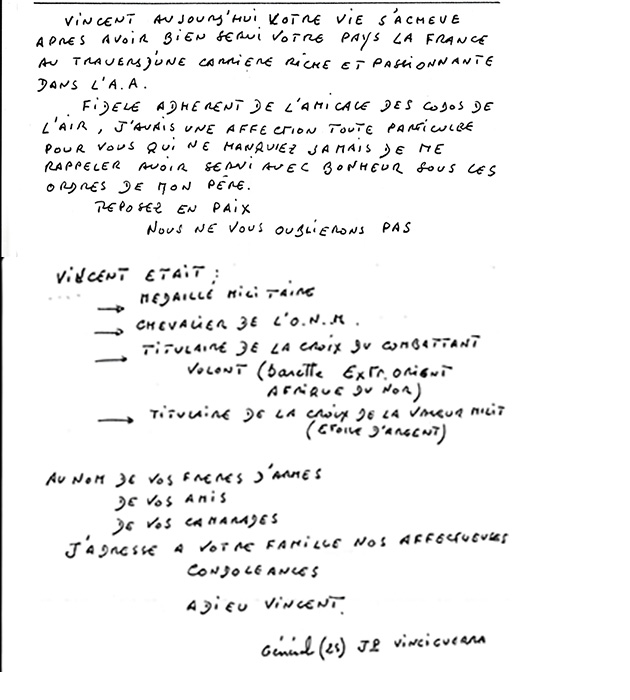 VINCENT AUJOURD'HUI VOTRE VIE S'ACHEVE
APRES AVOIR BIEN SERVI VOTRE PAYS LA FRANCE
AU TRAVERS D'UNE CARRIERE RICHE ET PASSIONNANTE
DANS L'A.A.
FIDELE ADHERENT DE L'AMICALE DES CODOS DE
L'AIR, J'AVAIS UNE AFFECTION TOUTE PARTICULRE
POUR VOUS QUI NE MANQUIEZ JAMAIS DE ME
RAPPELER AVOIR SERVI AVEC BONHEUR SOUS LES
ORDRES DE MON PÈRE.
REPOSEZ EN PAIX
NOUS NE VOUS OUBLIERONS PAS
VINCENT ETAIT :
→ MEDAILLÉ MILITAIRE
→ CHEVALIER DE L'O.N.M.
→ TITULAIRE DE LA CROIX DU COMBATTANT
VOLONT (barette EXTR. ORIENT
AFRIQUE DU NOR)
→ TITULAIRE DE LA CROIX DE LA VALEUR MILIT
(ETOILE D'ARGENT)
AU NOM DE VOS FRERES D'ARMES
DE VOS AMIS
DE VOS CAMARADES
J'ADRESSE A VOTRE FAMILLE NOS AFFECTUEUSES
CONDOLEANCES
ADIEU VINCENT.
Général (2S) JP VINCIGUERRA